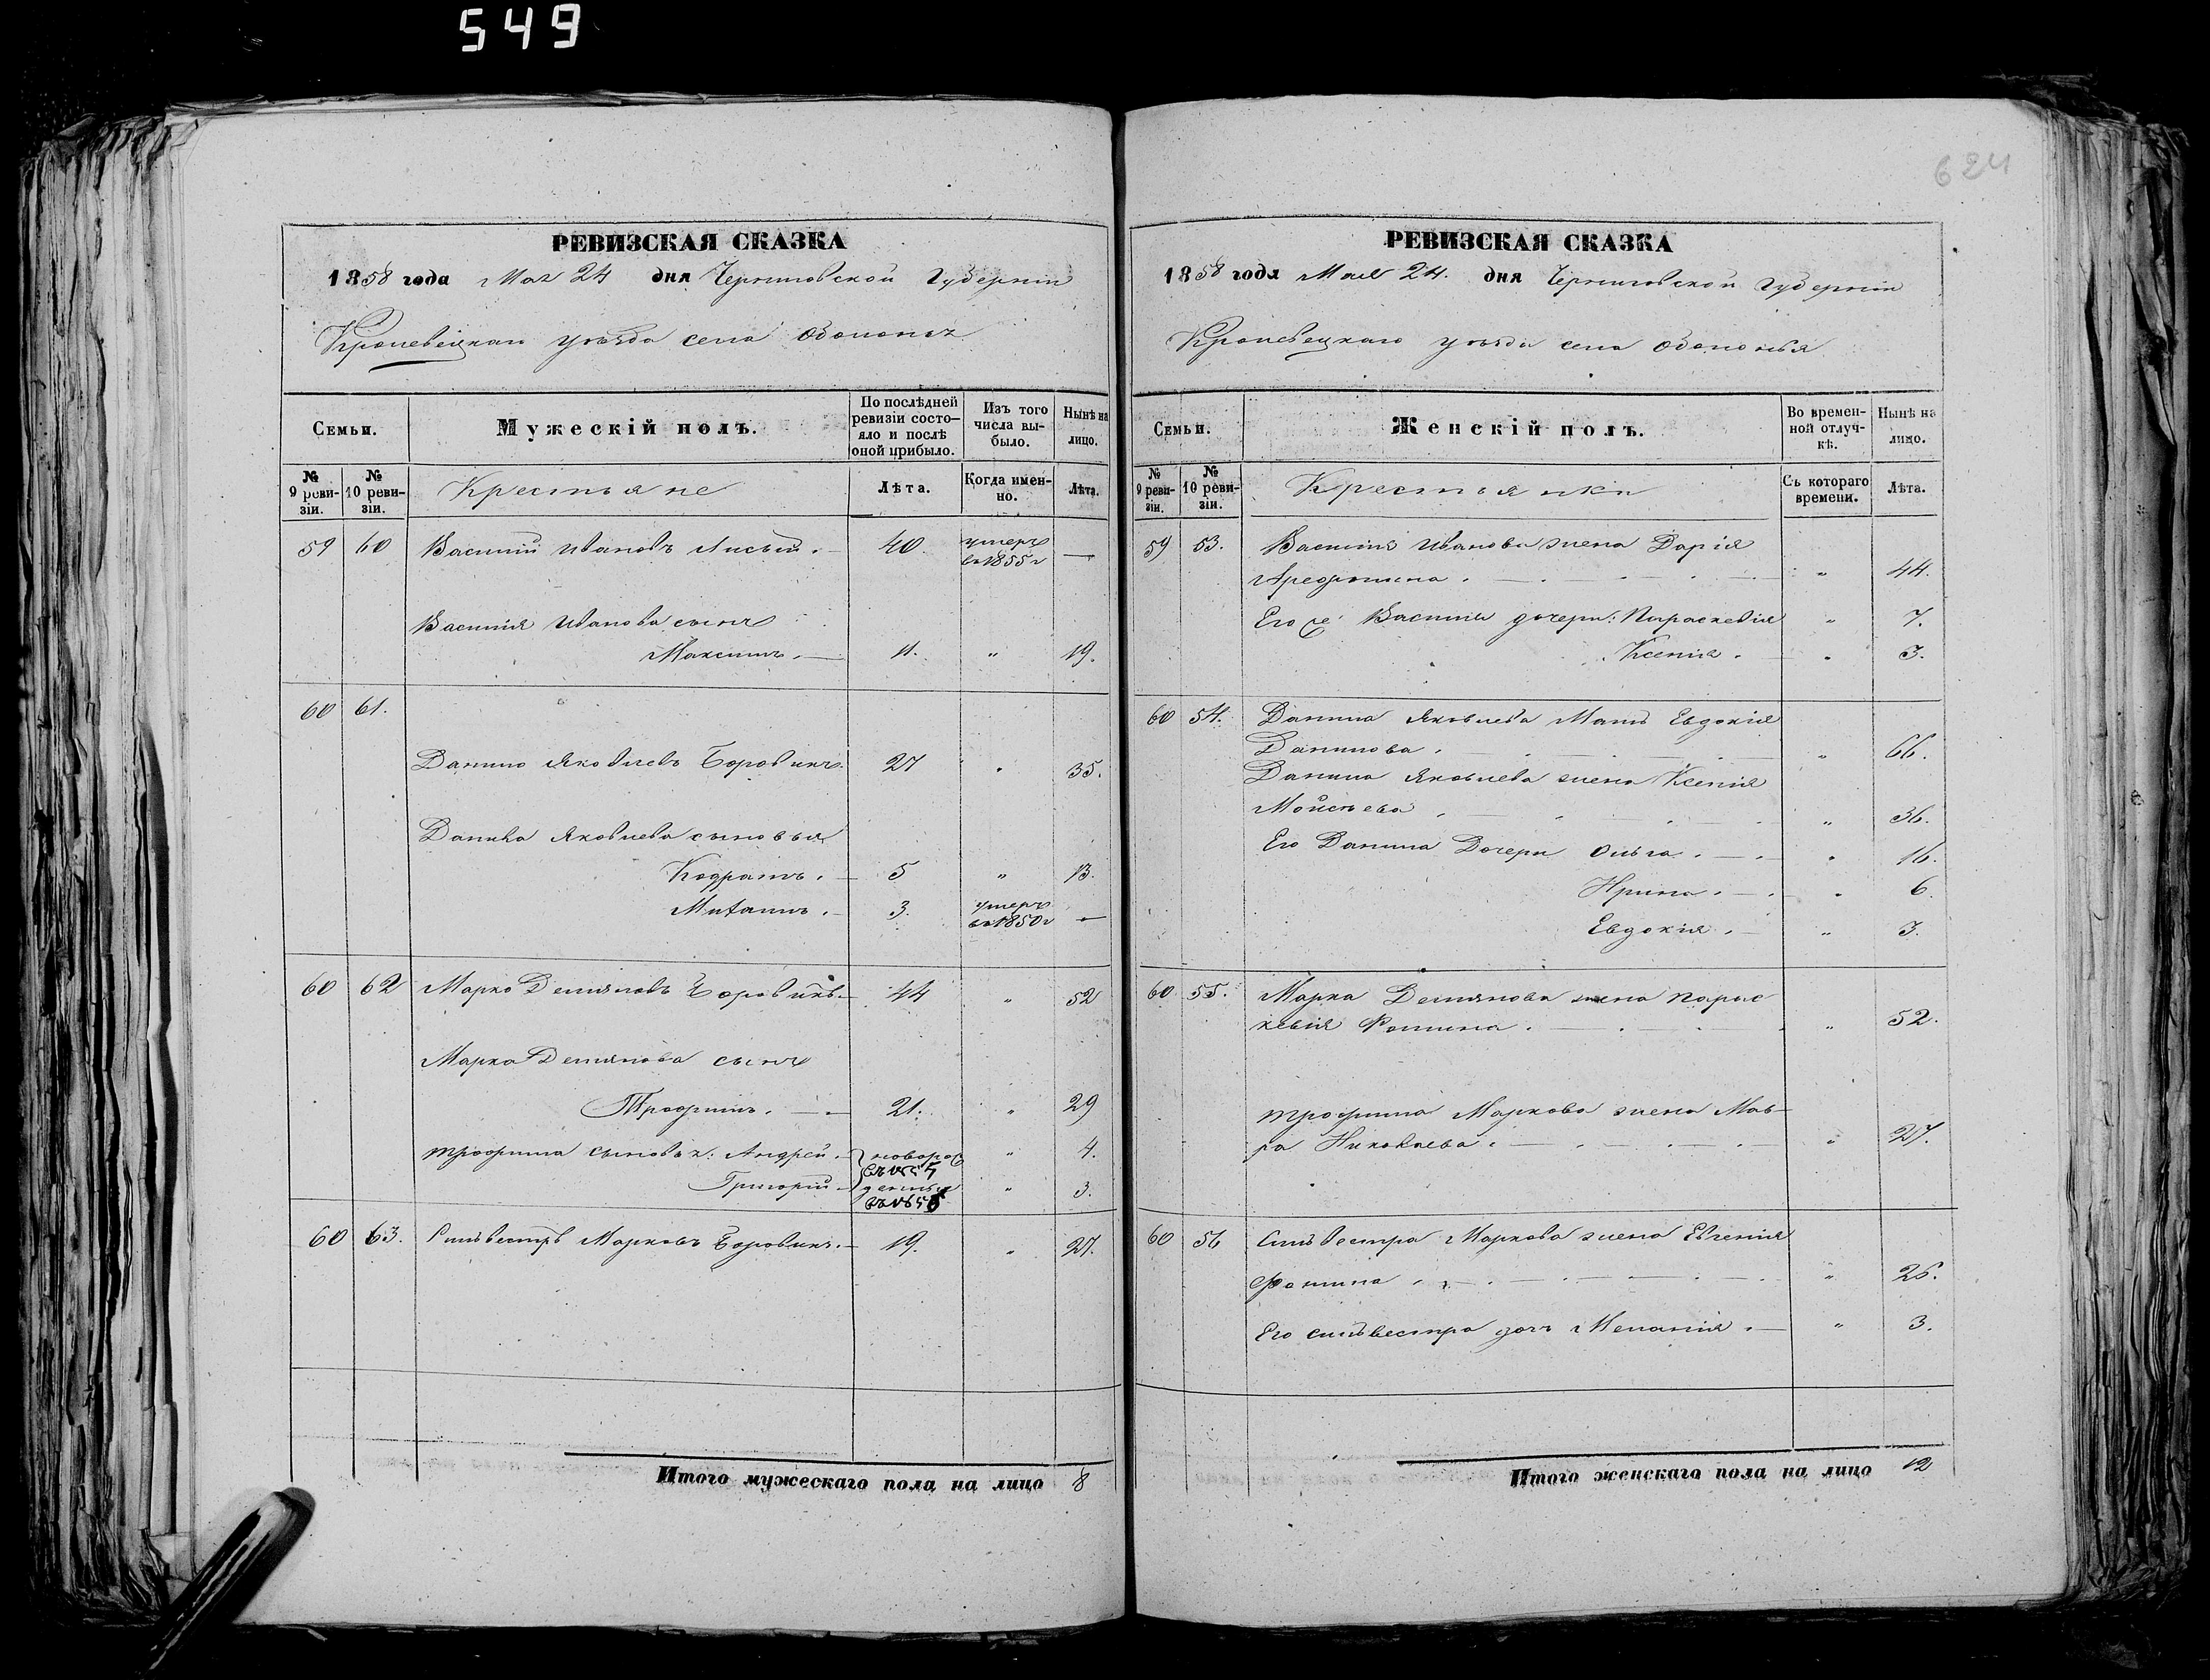 549
624
РЕВИЗСКАЯ СКАЗКА
1858 года Мая 24 дня Черниговской Губерніи
Кролевецкаго уезда села Оболонья
Семьи.
Мужескій полъ.
По послѣдней ревизіи состо-
яло и послѣ
оной прибыло.
Изъ того
числа вы-
было.
Нынѣ на
лицо.
№ 9 реви-
зіи.
№ 10 реви-
зіи.
Крестьяне
Лѣта.
Когда имен-
но.
Лѣта.
59 60 Василій Ивановъ Лисый. 40. умеръ в 1855 г —
Василія Иванова сынъ
Максимъ. 11. " 19.
60 61.
Данило Яковлевъ Боровикъ. 27 " 35.
Данила Яковлева сыновья
Кодратъ. 5 " 13.
3. умеръ в 1850 г —
60 62 Марко Демяновъ Боровикъ. 44 " 52
Марка Демянова сынъ
Трофимъ. 21. " 29
Трофима сыновья: Андрей. новорож " 4.
Григорій денны " 3.
60 63. Сильвестръ Марковъ Боровикъ. 19. " 27.
Итого мужескаго пола на лицо 8
РЕВИЗСКАЯ СКАЗКА
1858 года Мая 24. дня Черниговской Губерніи
Кролевецкаго уезда села Оболонья
Семьи.
Женскій полъ.
Во времен-
ной отлуч-
кѣ.
Нынѣ на
лицо.
№ 9 реви-
зіи.
№ 10 реви-
зіи.
Крестьянки
Съ котораго
времени.
Лѣта.
59 53. Василія Иванова жена Дарія
Арефтина. " 44.
Его же Василія дочери: Параскевія " 7.
Ксенія. " 3.
60 54. Данила Яковлева Мать Евдокія
Данилова. " 66.
Данила Яковлева жена Ксенія
Мойсѣева " 36.
Его Данила Дочери Ольга. " 16.
Ирина. " 6.
Евдокія. " 3.
60 55. Марка Демянова жена Парас
кевія Фомина. " 52.
Трофима Маркова жена Мав-
ра Николаева. " 27.
60 56 Сильвестра Маркова жена Евгенія
Фомина. " 26.
Его Сильвестра дочь Меланія. " 3.
Итого женскаго пола на лицо 12